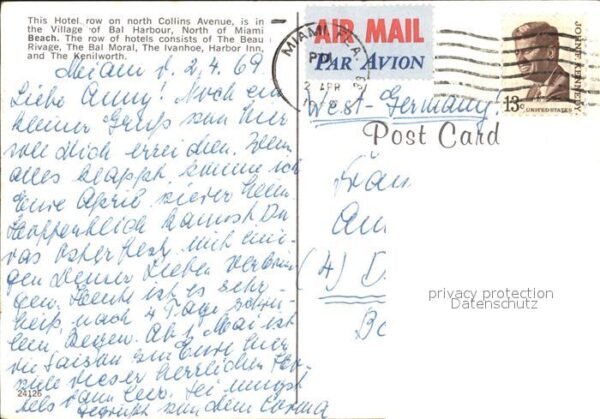 This Hotel row on north Collins Avenue, is in
the Village of Bal Harbour, North of Miami
Beach. The row of hotels consists of The Beau
Rivage, The Bal Moral, The Ivanhoe, Harbor Inn,
and The Kenilworth.
AIR MAIL
PAR AVION
MIAMI, FLA.
PM
2 APR
JOHN F. KENNEDY
13c
UNITED STATES
West-Germany!
Post Card
Miami d. 2.4.69
Liebe Anny! Noch ein
kleiner Gruß von hier
soll Dich erreichen. Wenn
alles klappt komme ich
Ende April wieder heim
Hoffentlich kannst Du
das Osterfest mit eini-
gen Deiner Lieben verbrin
gen. Heute ist es sehr
heiß, nach 4 Tage
Regen. Ab 1. Mai ist
die Saison zu Ende hier
viele dieser herrlichen Ho-
tels dann leer. Sei
gegrüßt von dem
24126
Frau
An
(4) D
privacy protection
Datenschutz